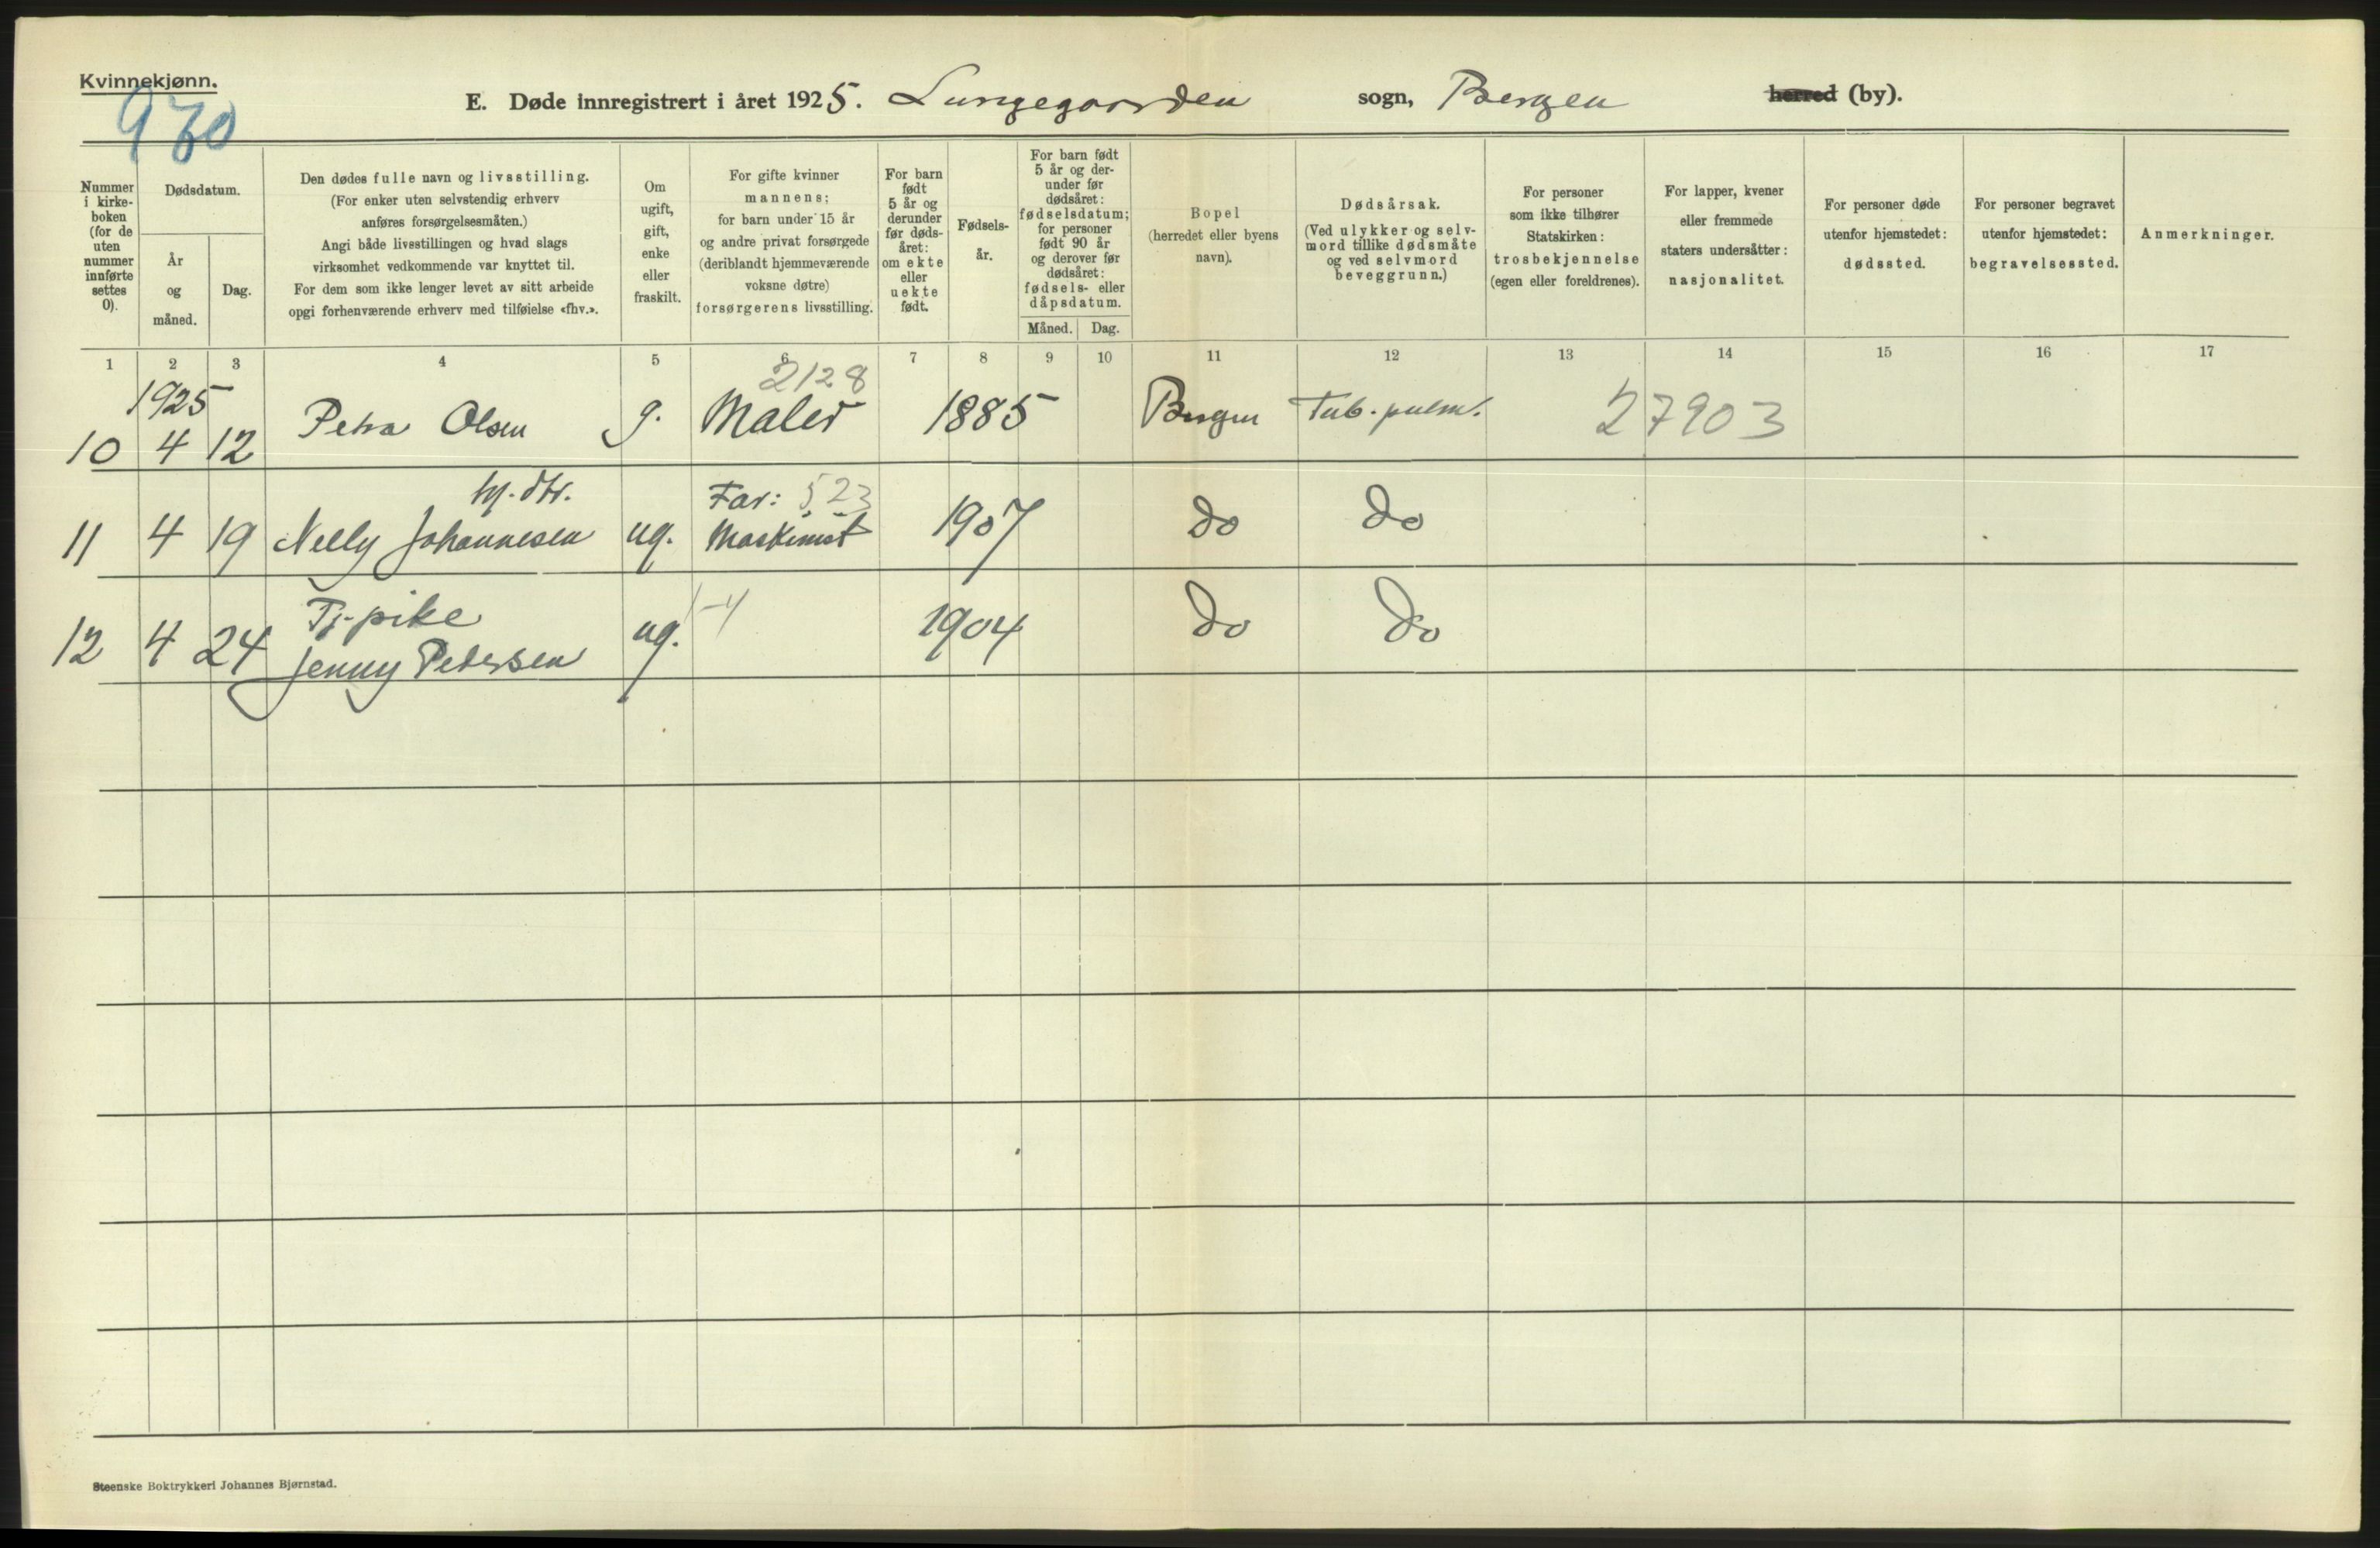 Kvinnekjønn.
970
E. Døde innregistrert i året 1925. Lungegaarden sogn, Bergen herred (by).
Nummer i kirke-boken (for de uten nummer innførte settes 0).
Dødsdatum.
År og måned.
Dag.
Den dødes fulle navn og livsstilling.
(For enker uten selvstendig erhverv
anføres forsørgelsesmåten.)
Angi både livsstillingen og hvad slags
virksomhet vedkommende var knyttet til.
For dem som ikke lenger levet av sitt arbeide
opgi forhenværende erhverv med tilføielse «fhv.».
Om
ugift,
gift,
enke
eller
fraskilt.
For gifte kvinner
mannens;
for barn under 15 år
og andre privat forsørgede
(deriblandt hjemmeværende
voksne døtre)
forsørgerens livsstilling.
For barn
født
5 år og
derunder
før døds-
året:
om ekte
eller
uekte
født.
Fødsels-
år.
For barn født
5 år og der-
under før
dødsåret:
fødselsdatum;
for personer
født 90 år
og derover før
dødsåret:
fødsels- eller
dåpsdatum.
Måned. Dag.
Bopel
(herredet eller byens
navn).
Dødsårsak.
(Ved ulykker og selv-
mord tillike dødsmåte
og ved selvmord
beveggrunn.)
For personer
som ikke tilhører
Statskirken:
trosbekjennelse
(egen eller foreldrenes).
For lapper, kvener
eller fremmede
staters undersåtter:
nasjonalitet.
For personer døde
utenfor hjemstedet:
dødssted.
For personer begravet
utenfor hjemstedet:
begravelsessted.
Anmerkninger.
1 2 3 4 5 6 7 8 9 10 11 12 13 14 15 16 17
1925 2128
10 4 12 Petra Olsen g. Maler 1885 Bergen Tub. pulm. 27903
hj. dtr. Far: 523
11 4 19 Nelly Johannesen ug. Maskinist 1907 do do
Tj.pike 1-4
12 4 24 Jenny Pedersen ug. 1904 do do
Steenske Boktrykkeri Johannes Bjørnstad.